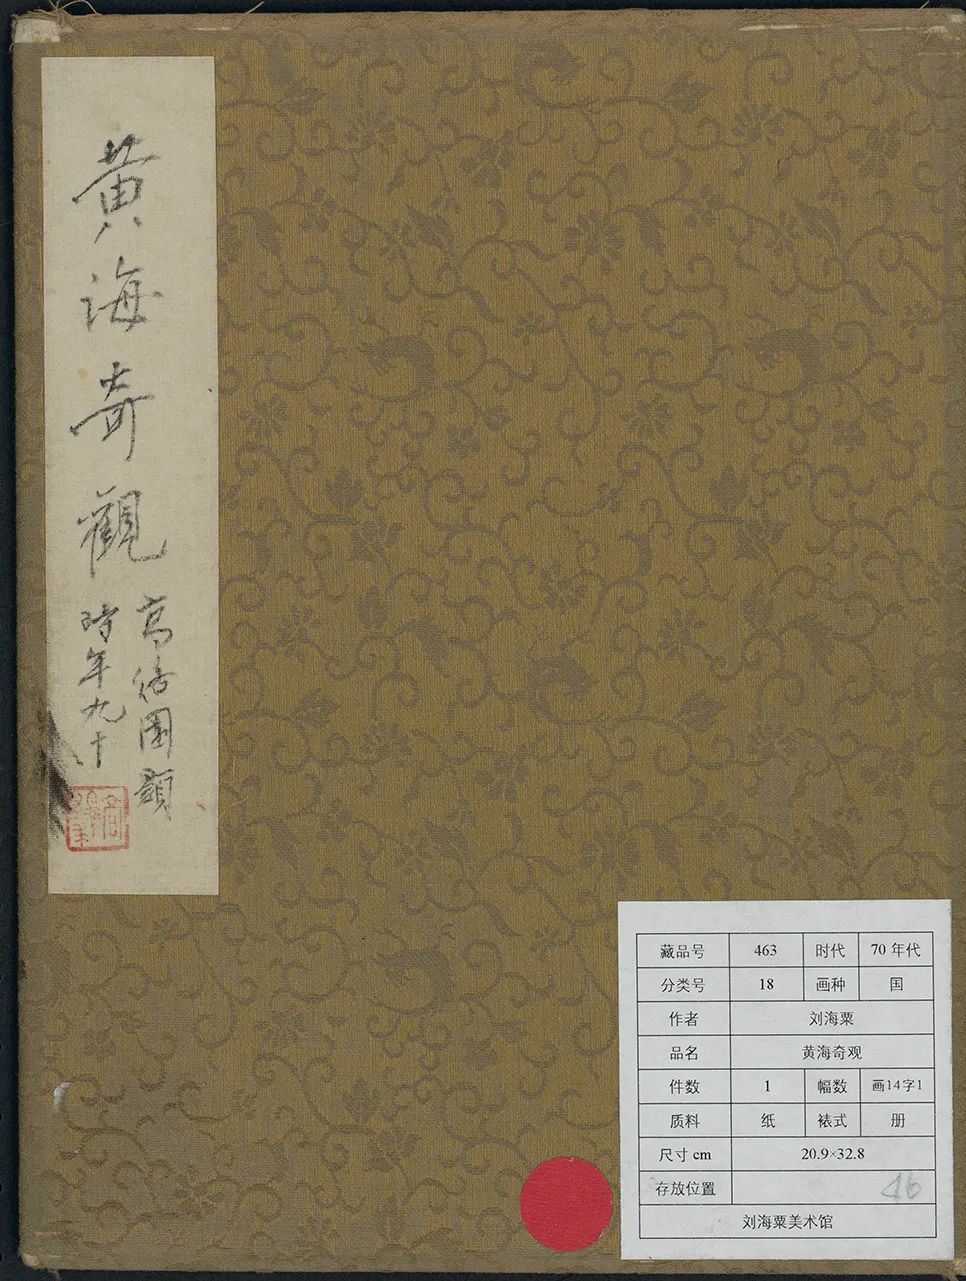 黄海奇觀
高络園題
时年九十
藏品号 463 时代 70 年代
分类号 18 画种 国
作者 刘海粟
品名 黄海奇观
件数 1 幅数 画14字1
质料 纸 裱式 册
尺寸 cm 20.9×32.8
存放位置 46
刘海粟美术馆